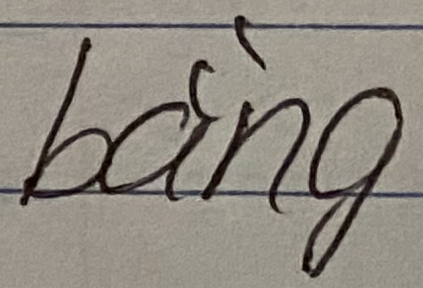 bằng